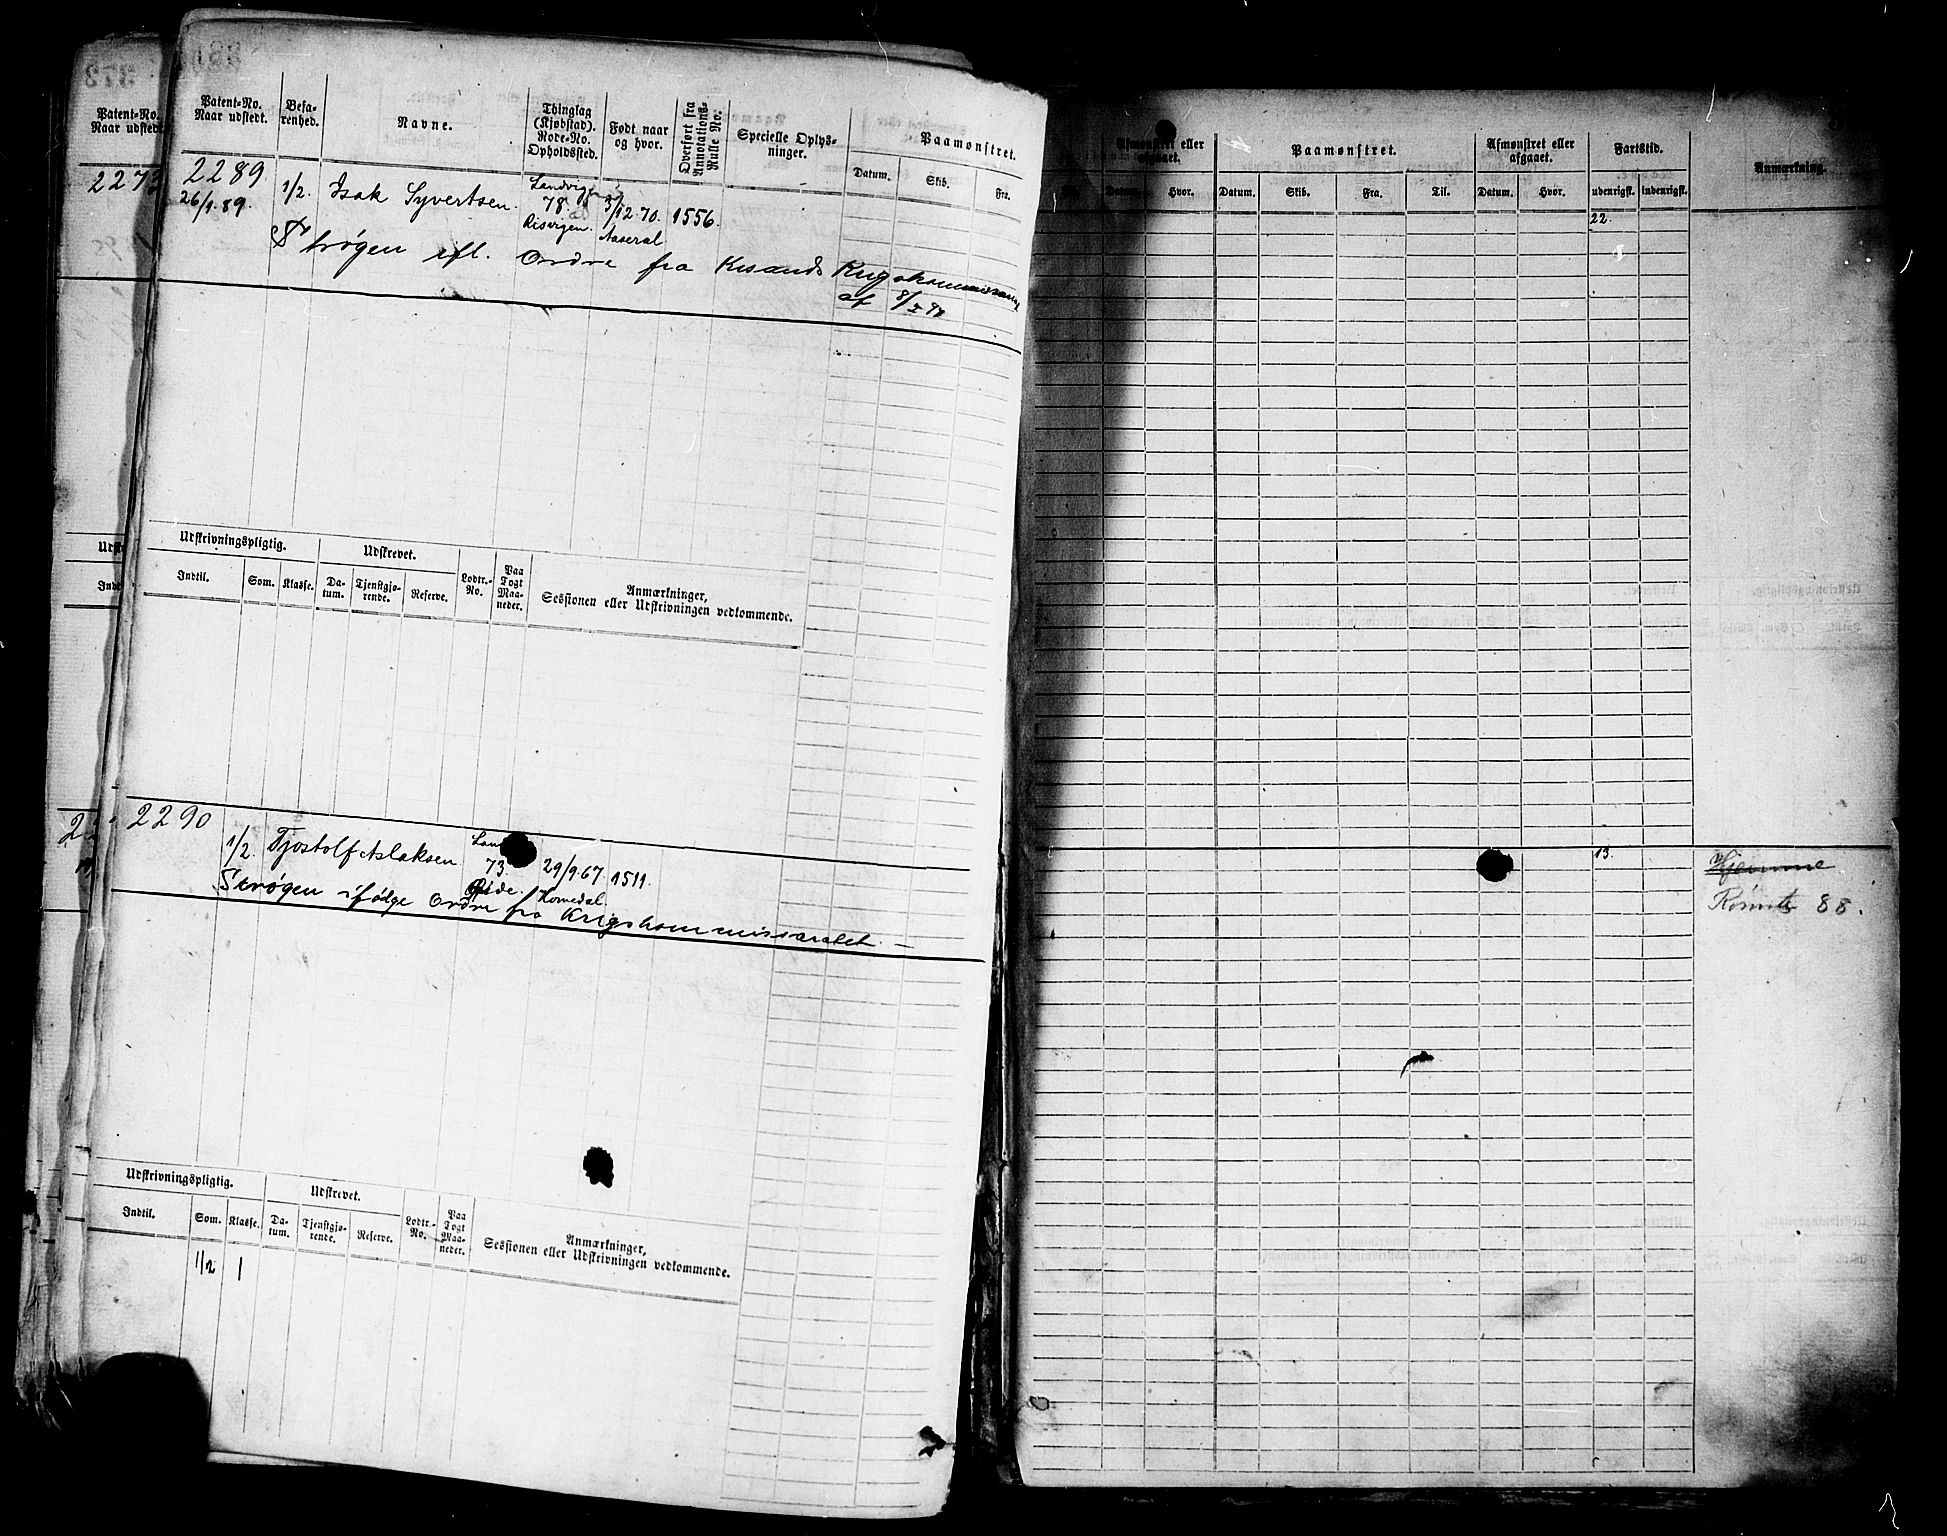 Patent-No.
Naar udstedt.
2273
Patent-No.
Naar udstedt.
Befa-
renhed.
Navne.
Thinglag
(Kjøbstad).
Rode-No.
Opholdssted.
Født naar
og hvor.
Overført fra
Annotations-
Rulle No.
Specielle Oplys-
ninger.
Paamønstret.
Datum.
Skib.
Fra.
2289
26/1.89.
1/2.
Isak Syvertsen.
Landvig
78.
3/12.70.
Aaseral
1556.
Strøgen efl. Ordre fra Krsands Krigskommissariat
af
Udskrivningspligtig.
Udskrevet.
Lodtr.-
No.
Paa
Togt
Maa-
neder.
Anmærkninger,
Sessionen eller Udskrivningen vedkommende.
Indtil.
Som.
Klasse.
Da-
tum.
Tjenstgjø-
rende.
Reserve.
2290
1/2.
Tjostolf Aslaksen
73.
Eide.
29/9.67
Homedal
1511.
Strøgen ifølge Ordre fra Krigskommissariatet. —
Udskrivningspligtig.
Udskrevet.
Lodtr.-
No.
Paa
Togt
Maa-
neder.
Anmærkninger,
Sessionen eller Udskrivningen vedkommende.
Indtil.
Som.
Klasse.
Da-
tum.
Tjenstgjø-
rende.
Reserve.
1/2
1
Afmønstret eller
afgaaet.
Paamønstret.
Afmønstret eller
afgaaet.
Fartstid.
Anmærkning.
Datum.
Hvor.
Datum.
Skib.
Fra.
Til.
Datum.
Hvor.
udenrigsk.
indenrigsk.
22.
13.
Hjemme
88.